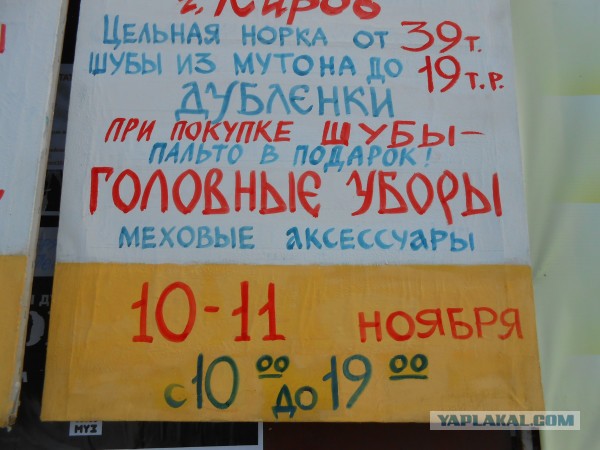 г. Киров
ЦЕЛЬНАЯ НОРКА ОТ 39 т.
ШУБЫ ИЗ МУТОНА ДО 19 т.р.
ДУБЛЕНКИ
ПРИ ПОКУПКЕ ШУБЫ-
ПАЛЬТО В ПОДАРОК!
ГОЛОВНЫЕ УБОРЫ
МЕХОВЫЕ АКСЕССУАРЫ
10-11 НОЯБРЯ
С 10 00 ДО 19 00
МУЗ
YAPLAKAL.COM